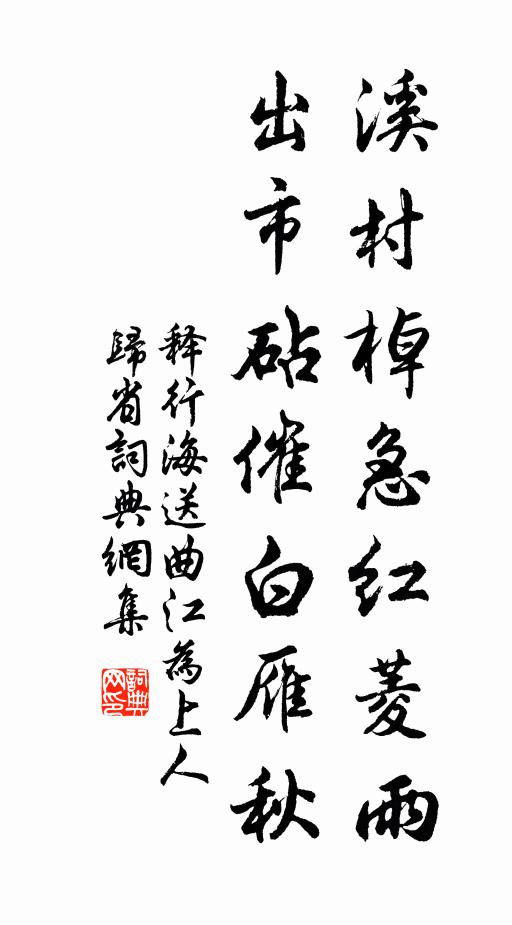 溪村棹急红菱雨
出市砧催白雁秋
释行海送曲江為上人
歸省詞典網集
詞典
网印